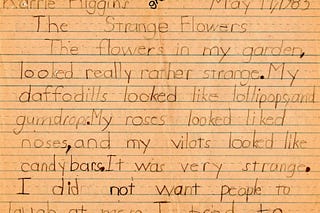 Karrie Higgins May 17, 1985
The Strange Flowers
The flowers in my garden,
looked really rather strange. My
daffodills looked like lollipops, and
gumdrops. My roses looked liked
noses, and my vilots looked like
candybars. It was very strange.
I did not want people to
laugh at me so I tried to